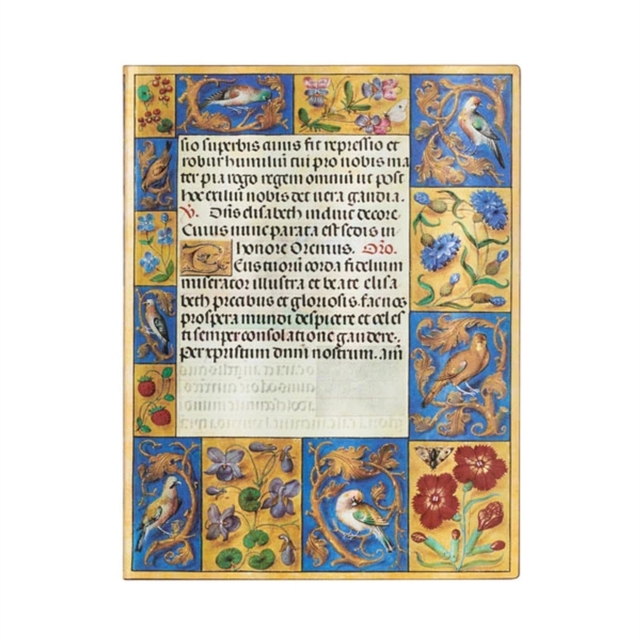 sio superbis auus fit repressio et
robur humiliū tui pro nobis ma
ter pia rogo regem omniū ut post
hoc exiliū nobis det uera gaudia.
V. Dn̄s elisabeth induit decore
Cuius nunc parata est sedis in
honore Oremus. Oro.
Eus tuorū corda fidelium
miserator illustra et beate elisa
beth precibus et gloriosis fac nos
prospera mundi despicere et celes
ti semper consolatione gaudere.
per xpristum dnm̄ nostrum. am̄